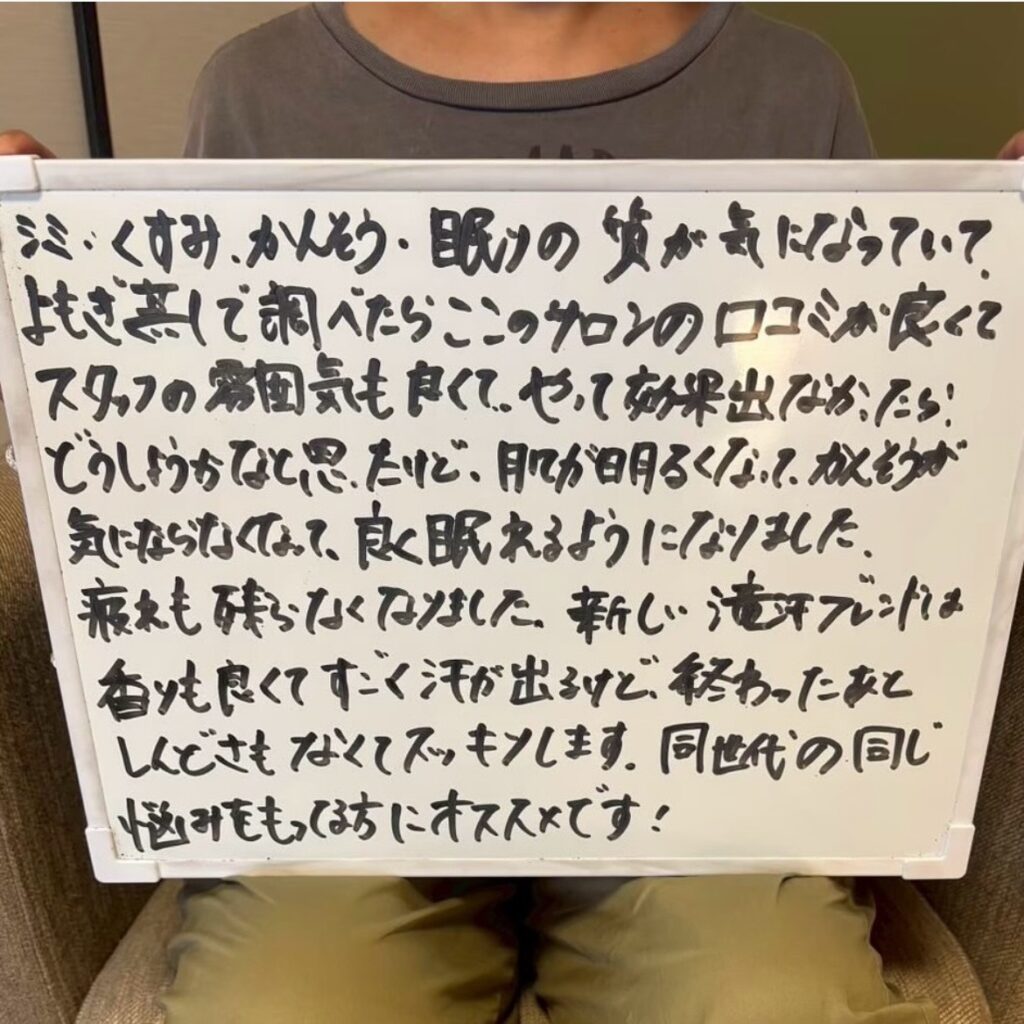 シミ・くすみ、かんそう・眠りの質が気になっていて、
よもぎ蒸しで調べたらここのサロンの口コミが良くて
スタッフの雰囲気も良くて、やって効果出なかったら
どうしようかなと思ったけど、肌が明るくなって、かんそうが
気にならなくなって、良く眠れるようになりました、
疲れも残らなくなりました。新しい滝汗ブレンドは
香りも良くてすごく汗が出るけど、終わったあと
しんどさもなくてスッキリします。同世代の同じ
悩みをもってる方にオススメです!